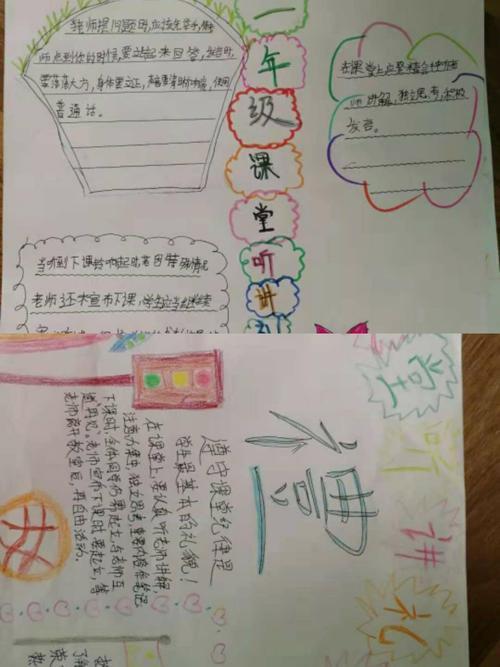 老师提问题时,应该先举手,待老
师点到你的时候,要站起来回答,发言时,
要落落大方,身体要立正,声音要清晰响亮,使用
普通话。
一
年
级
课
堂
听
讲
礼
在课堂上应要集会神听老
师讲解,独立思考,积极
发言。
当听到下课铃响起时,若因特殊情况
老师还未宣布下课,学生应当继续
堂
听
讲
礼
德
遵守课堂纪律是
学生最基本的礼貌!
在课堂上,要认真听老师讲解,
注意力集中,独立思考,重要内容作笔记
下课时,全体同学仍需起立,与老师互
道"再见"。老师宣布下课时,要起立,等
老师离开教室后,再自由活动。